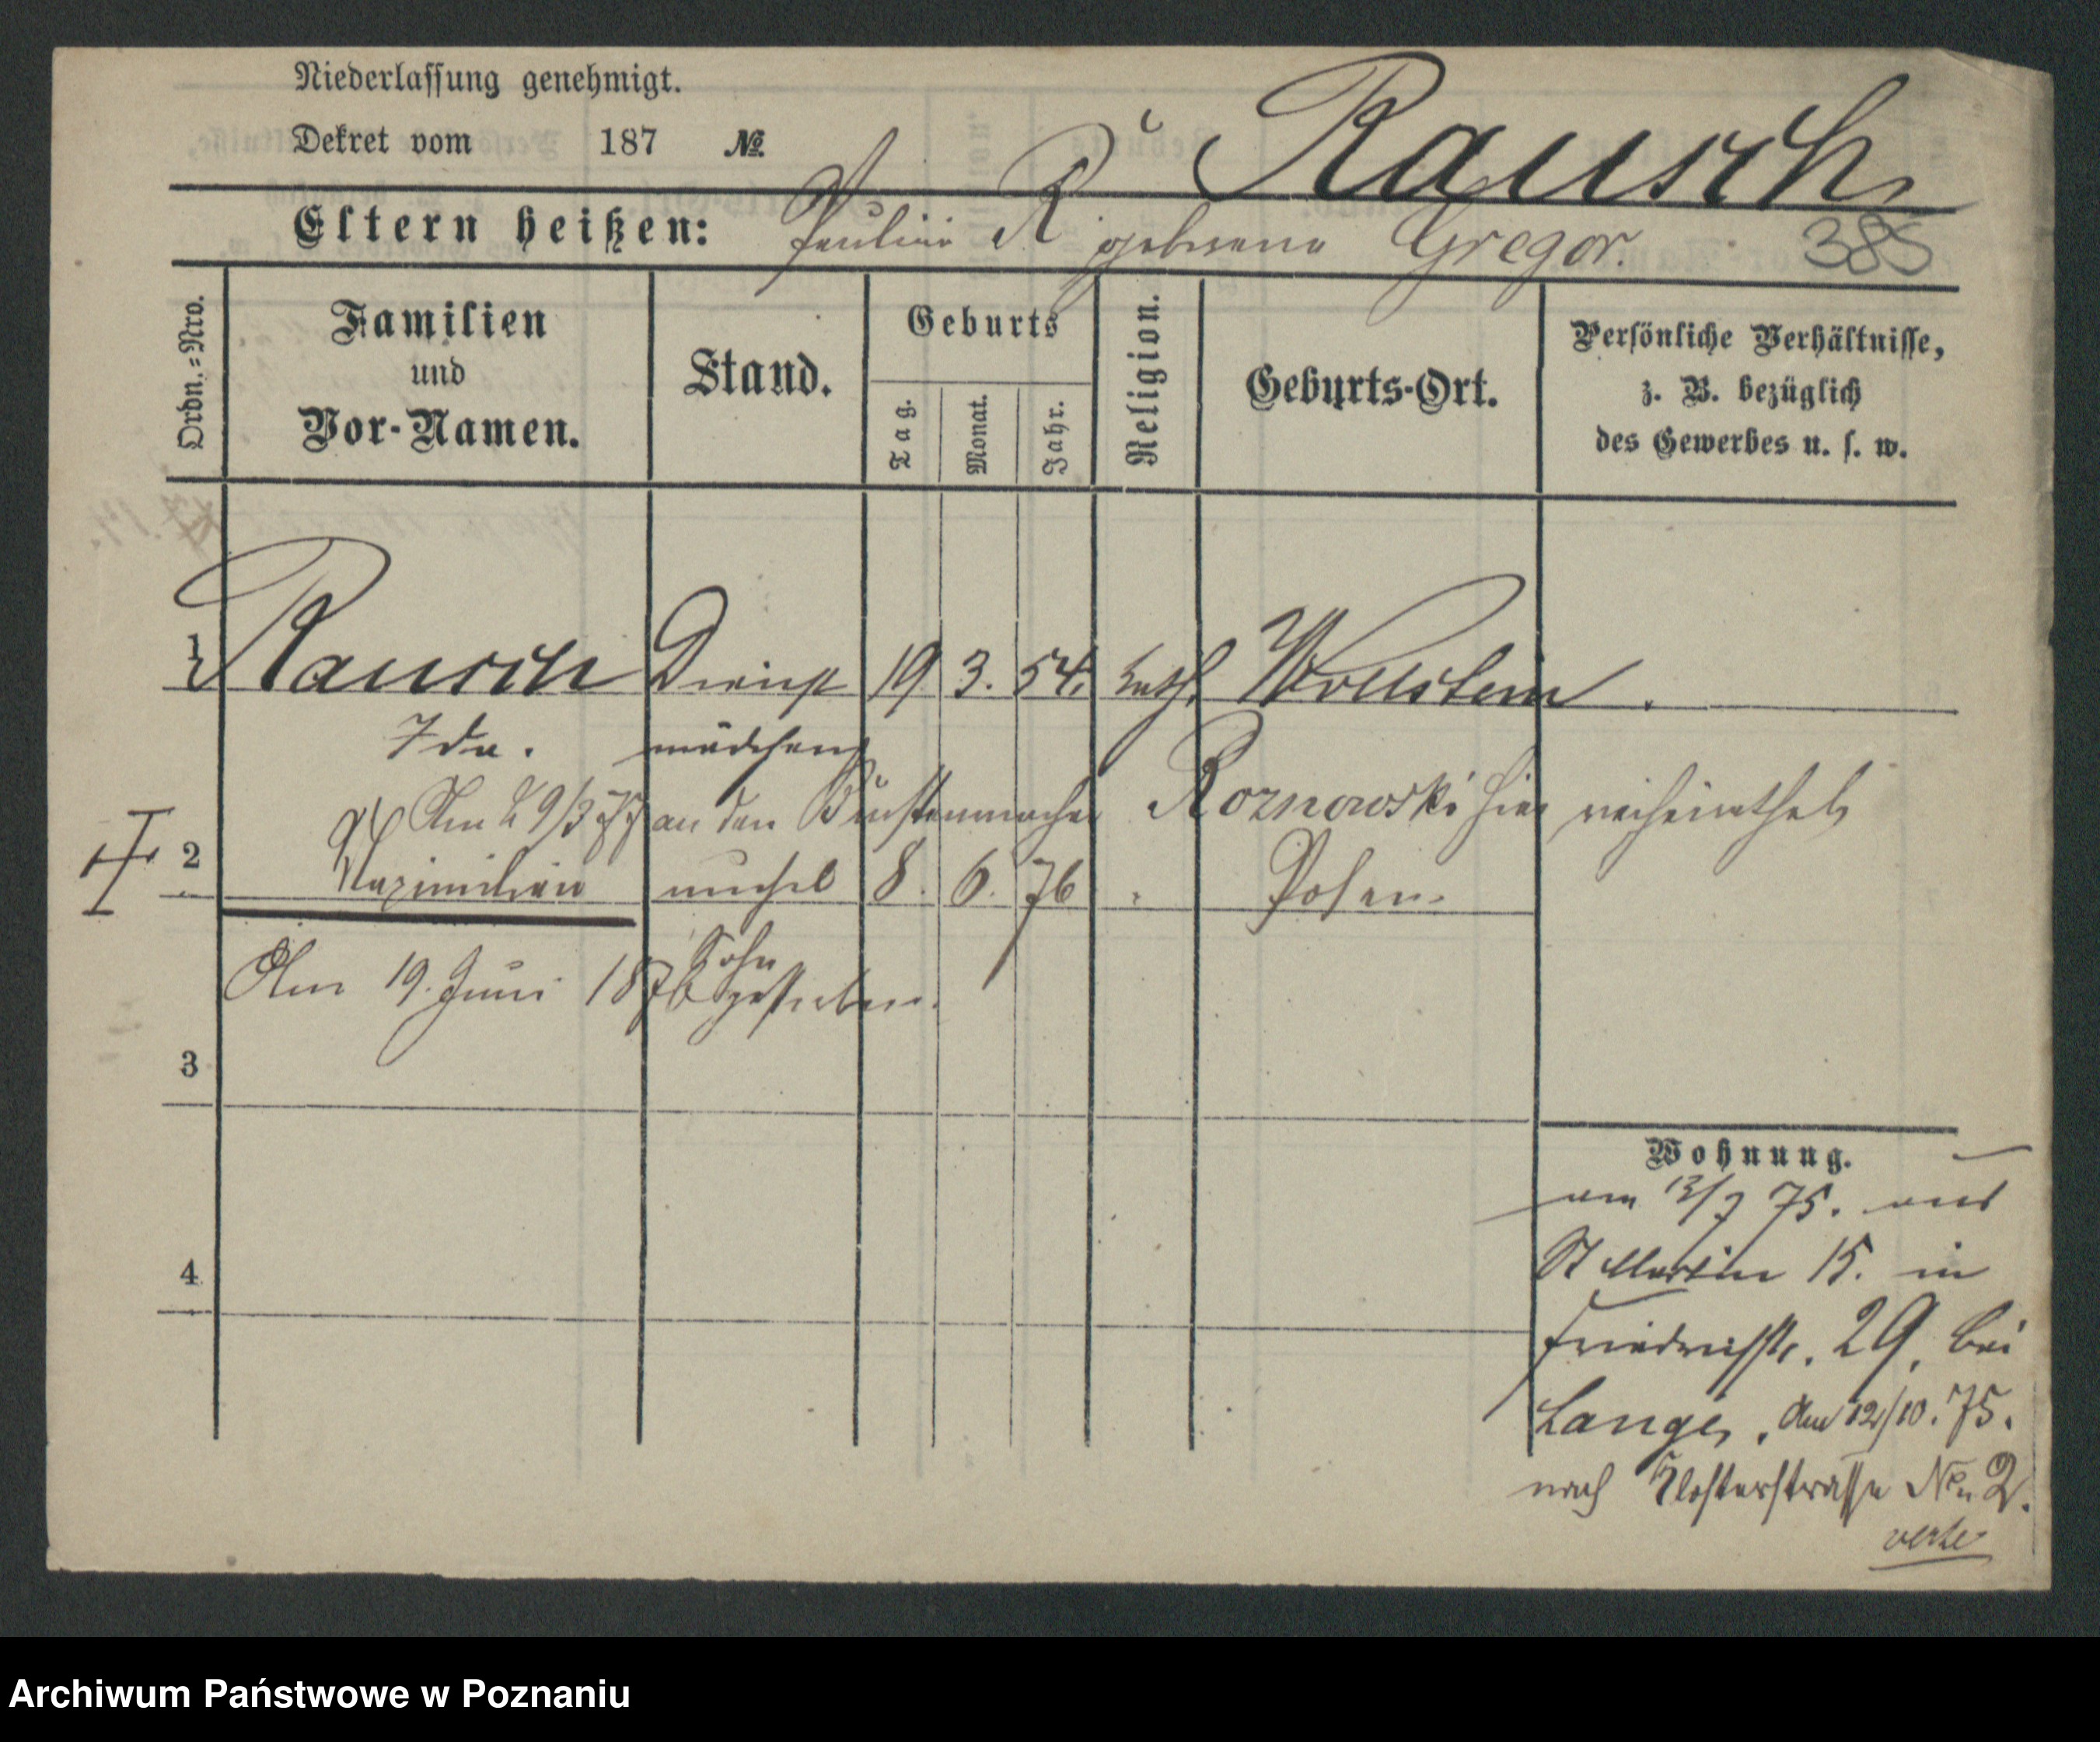 Niederlassung genehmigt.
Dekret vom 187 №
Rausch
Eltern heißen: Pauline R geborene Gregor. 385
Ordn.-Nro.
Familien und Vor-Namen.
Stand.
Geburts
Tag.
Monat.
Jahr.
Religion.
Geburts-Ort.
Persönliche Verhältnisse,
z. B. bezüglich
des Gewerbes u. s. w.
1 Rausch Dienst 19. 3. 54. kath. Wollstein.
Ida. mädchen
Am 29/3 77 an den Bürstenmacher Roznowski hier verheirathet
2 Maximilian unehel 8. 6. 76 " Posen.
Sohn
Am 19. Juni 1876 gestorben.
3
4
Wohnung.
am 13/7 75. aus
St Martin 15. in
Friedrichstr. 29. bei
Lange, Am 12/10. 75.
nach Klosterstrasse No 2.
verte
Archiwum Państwowe w Poznaniu